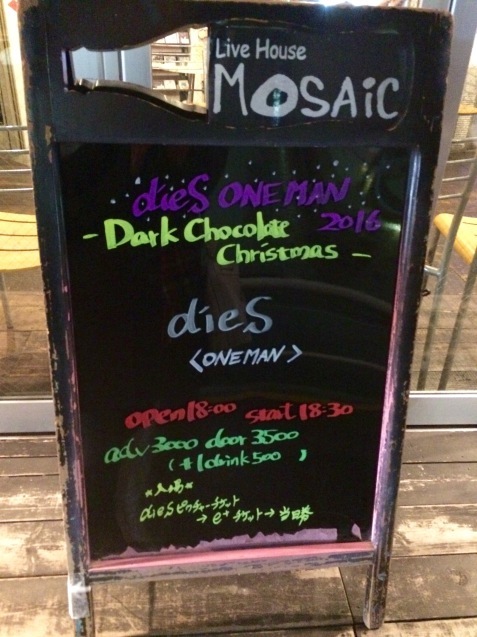 Live House
MOSAiC
dieS ONEMAN
2016
- Dark Chocolate
Christmas -
dieS
<ONEMAN>
open 18:00 start 18:30
adv 3000 door 3500
(+1drink 500 )
*入場*
dieSピクチャーチケット
→e+チケット→当日券